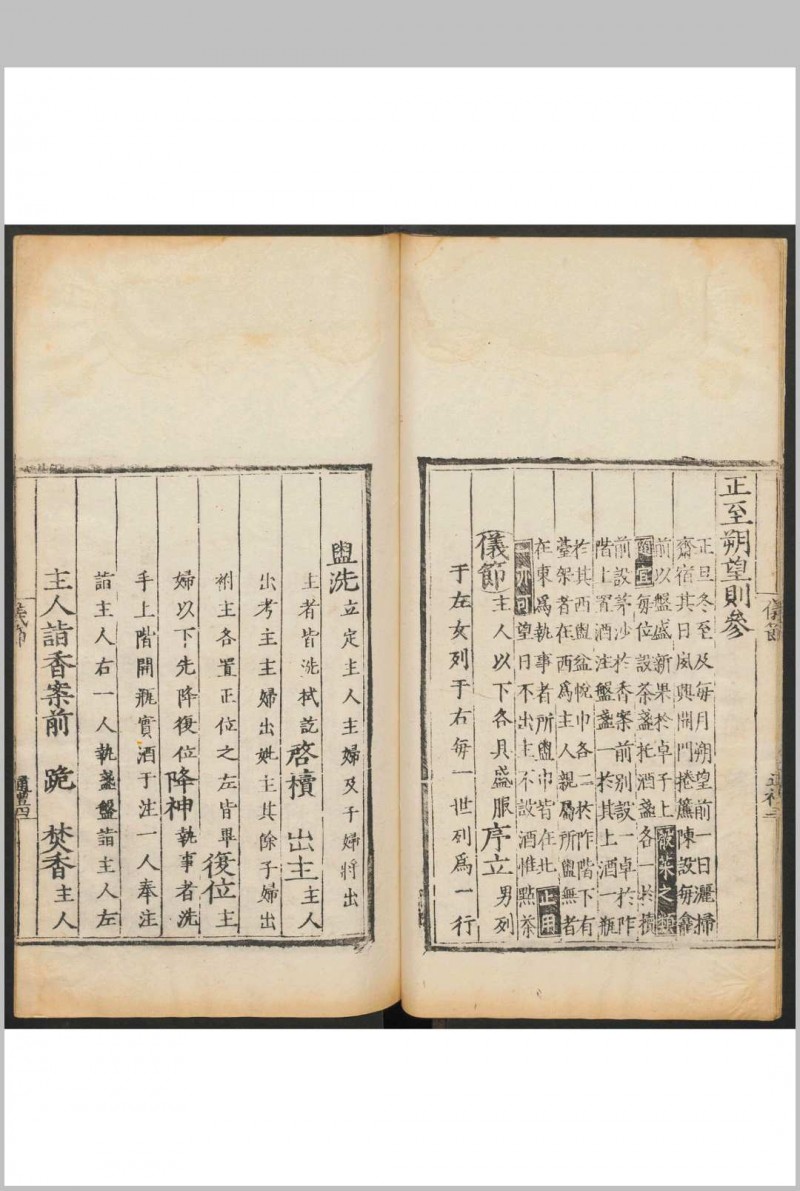 正至朔望則參
正旦冬至及每月朔望前一日灑掃
齋宿其日夙興開門捲簾陳設每龕
前以盤盛新果於卓子上蔬菜之類
隨宜每位設茶盞托酒盞各一於櫝
前設茅沙於香案前別設一卓於阼
階上置酒注盤盞一於其上酒一瓶
於其西盥盆帨巾各二於阼階下有
臺架者在西爲主人親屬所盥無者
在東爲執事者所盥巾皆在北正用
一亦可望日不出主不設酒惟點茶
儀節主人以下各具盛服序立男列
于左女列于右每一世列爲一行
盥洗立定主人主婦及子婦將出
主者皆洗拭訖啓櫝 出主主人
出考主主婦出妣主其餘子婦出
祔主各置正位之左皆畢復位主
婦以下先降復位降神執事者洗
手上階開瓶實酒于注一人奉注
詣主人右一人執盞盤詣主人左
主人詣香案前 跪 焚香主人